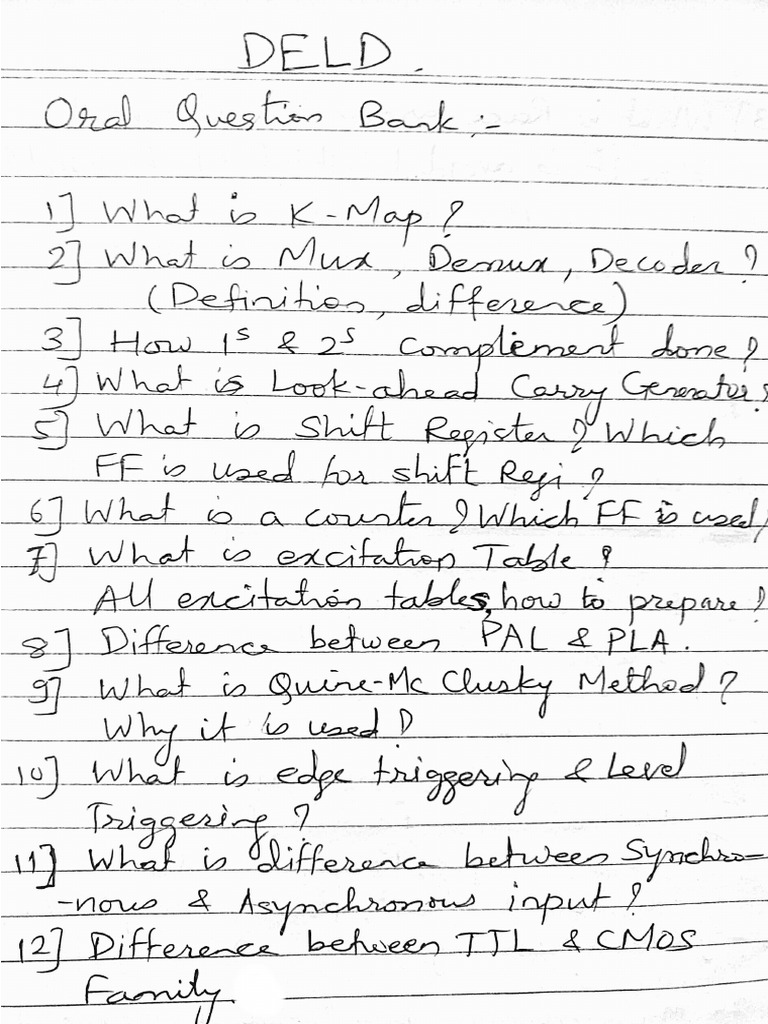 DELD.
Oral Question Bank:-
1] What is K-Map?
2] What is Mux, Demux, Decoder?
(Definition, difference)
3] How 1s & 2s complement done?
4] What is Look-ahead Carry Generator?
5] What is Shift Register? Which
FF is used for shift Regi?
6] What is a counter? Which FF is used?
7] What is excitation Table?
All excitation tables, how to prepare?
8] Difference between PAL & PLA.
9] What is Quine-Mc Clusky Method?
Why it is used?
10] What is edge triggering & Level
Triggering?
11] What is difference between Synchro-
-nous & Asynchronous input?
12] Difference between TTL & CMOS
Family